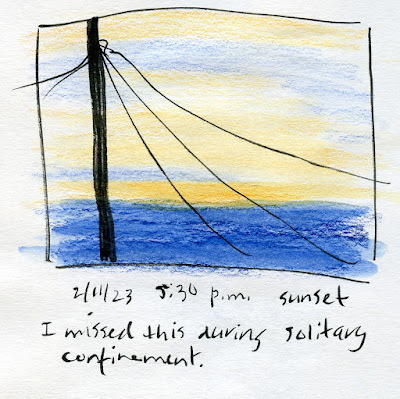 2/11/23 5:30 p.m. sunset
I missed this during solitary
confinement.